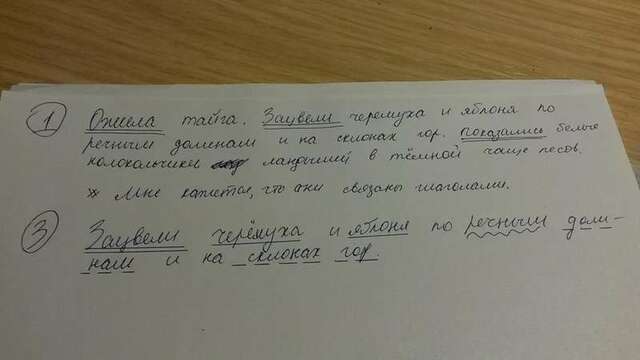 1 Ожила тайга. Зацвели черемуха и яблоня по
речным долинам и на склонах гор. Показались белые
колокольчики ландышей в тёмной чаще лесов.
* Мне кажется, что они связаны глаголами.
3 Зацвели черёмуха и яблоня по речным доли-
нам и на склонах гор.